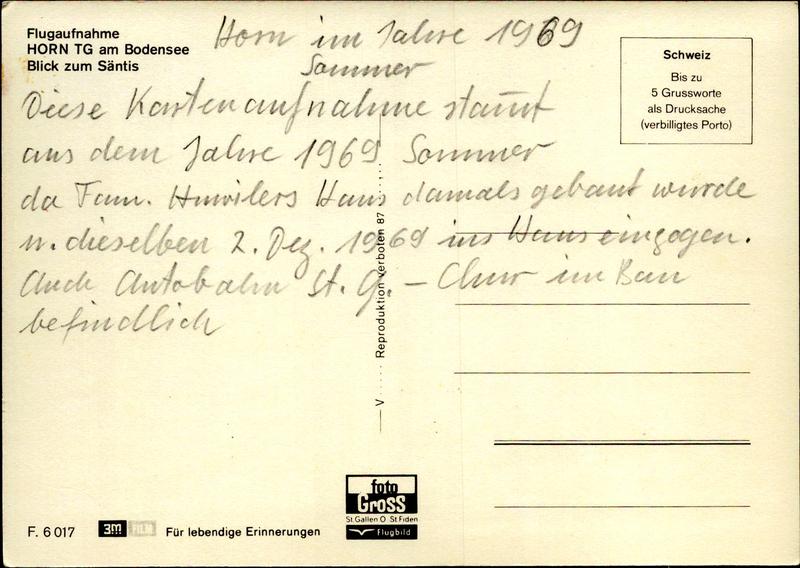 Flugaufnahme
HORN TG am Bodensee
Blick zum Säntis
Horn im Jahre 1969
Sommer
Schweiz
Bis zu
5 Grussworte
als Drucksache
(verbilligtes Porto)
Diese Kartenaufnahme stam̄t
aus dem Jahre 1969 Sommer
da Fam. Huwilers Haus damals gebaut wurde
u. dieselben 2. Dez. 1969 ins Haus eingogen.
Auch Autobahn St. G. – Chur im Bau
befindlich
V ..... Reproduktion verboten 87 .....
foto
GROSS
St. Gallen O St Fiden
Flugbild
F. 6 017
3M FILM
Für lebendige Erinnerungen